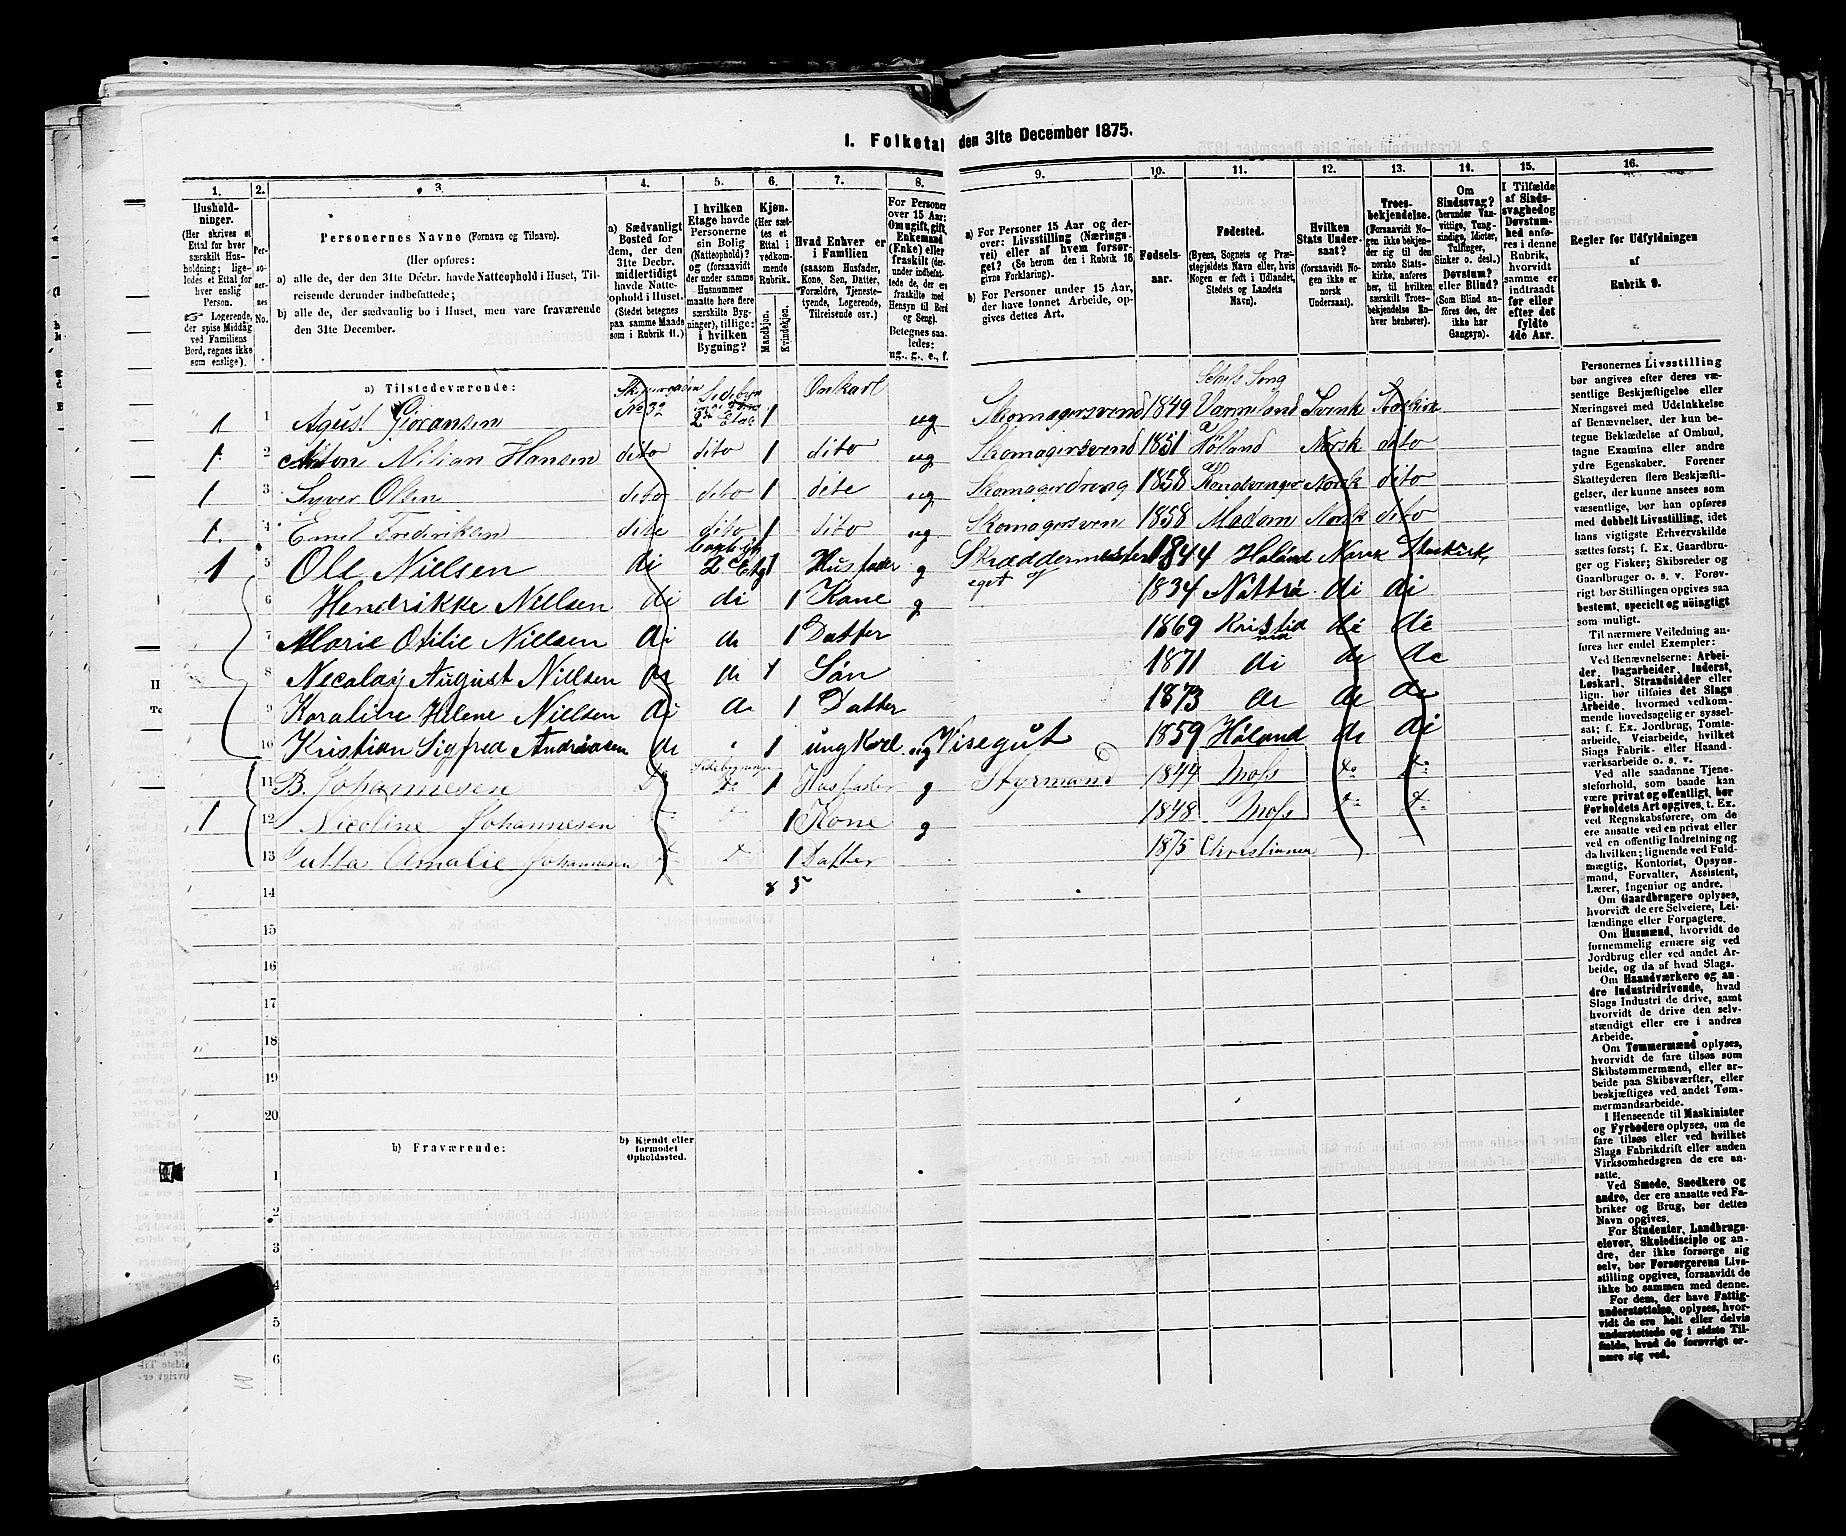 1. Folketal den 31te December 1875.
1. 2. 3. 4. 5. 6. 7. 8. 9. 10. 11. 12. 13. 14. 15. 16.
Hushold-
ninger.
(Her skrives et
Ettal for hver
særskilt Hus-
holdning; lige-
ledes et Ettal
for hver enslig
Person.
☞ Logerende,
der spise Middag
ved Familiens
Bord, regnes ikke
som enslige).
Per-
so-
ner-
nes
No.
Personernes Navne (Fornavn og Tilnavn).
(Her opføres:
a) alle de, der den 31te Decbr. havde Natteophold i Huset, Til-
reisende derunder indbefattede;
b) alle de, der sædvanlig bo i Huset, men vare fraværende
den 31te December.
a) Sædvanligt
Bosted for
dem, der den
31te Decbr.
midlertidigt
havde Natte-
ophold i Huset.
(Stedet betegnes
paa samme Maade
som i Rubrik 11.)
I hvilken
Etage havde
Personerne
sin Bolig
(Natteophold)?
og (forsaavidt
der under samme
Husnummer
maatte høre flere
særskilte Byg-
ninger), tillige:
i hvilken
Bygning?
Kjøn.
(Her sæt-
tes et
Ettal i
vedkom-
mende
Rubrik.
Mandkjøn.
Kvindekjøn.
Hvad Enhver er
i Familien
(saasom Husfader,
Kone, Søn, Datter,
Forældre, Tjeneste-
tyende, Logerende,
Tilreisende osv.)
For Personer
over 15 Aar:
Om ugift, gift,
Enkemand
(Enke) eller
fraskilt (der-
under indbefat-
tede de, der ere
fraskilte med
Hensyn til Bord
og Seng).
Betegnes saa-
ledes:
ug., g., e., f.
a) For Personer 15 Aar og der-
over: Livsstilling (Nærings-
vei) eller af hvem forsør-
get? (Se herom den i Rubrik 16
givne Forklaring).
b) For Personer under 15 Aar,
der have lønnet Arbeide, op-
gives dettes Art.
Fødsels-
aar.
Fødested.
(Byens, Sognets og Præ-
stegjeldets Navn eller, hvis
Nogen er født i Udlandet,
Stedets og Landets
Navn).
Hvilken
Stats Under-
saat?
(forsaavidt No-
gen ikke er
norsk
Undersaat).
Troes-
bekjendelse.
(Forsaavidt No-
gen ikke bekjen-
der sig til den
norske Stats-
kirke, anføres
her, til hvilken
særskilt Troes-
bekjendelse En-
hver henhører).
Om
Sindssvag?
(herunder Van-
vittige, Tung-
sindige, Idioter,
Tullinger,
Sinker o. desl.)
Døvstum?
eller Blind?
(Som Blind an-
føres den, der
ikke har
Gangsyn).
I Tilfælde
af Sinds-
svaghed og
Døvstum-
hed anfø-
res i denne
Rubrik,
hvorvidt
samme er
indtraadt
før eller
efter det
fyldte
4de Aar.
Regler før Udfyldningen
af
Rubrik 9.
a) Tilstedeværende:
1 1 Agust Gjøransen No 32 2den Etag 1 Onkarl ug Skomagersvend 1849 Varmeland Svensk
1 2 Anton Nilian Hansen dito dito 1 dito ug Skomagersvend 1851 Høland Norsk dito
1 3 Syver Olsen dito dito 1 dito ug Skomagerdreng 1858 Norsk dito
1 4 Emel Frederiksen dito dito 1 dito ug Skomagersven 1858 Norsk dito
1 5 Ole Nielsen di 2 Etg 1 Husfader g Skræddermester 1844 Høland Norsk Statskirk
6 Hendrikke Nielsen di di 1 Kone g 1834 di di
7 Marie Otilie Nielsen di di 1 Datter 1869 di di
8 Necalay August Nielsen di di 1 Søn 1871 di di di
9 Karaline Helene Nielsen di di 1 Datter 1873 di di di
10 Kristian Sigfred Andreasen di 1 ung Karl ug Visegut 1859 Høland di di
11 B. Johannesen Do Sidebygningen Do 1 Husfader g Styrmand 1844 Moss Do Do
1 12 Nicoline Johannesen 1 Kone g 1848 Moss Do Do
13 Jutta Amalie Johannesen 1 Datter 1875 Christiania
14 8 5
15
16
17
18
19
20
b) Fraværende:
b) Kjendt eller
formodet
Opholdssted.
1
2
3
4
5
6
Personernes Livsstilling
bør angives efter deres væ-
sentlige Beskjæftigelse eller
Næringsvei med Udelukkelse
af Benævnelser, der kun be-
tegne Beklædelse af Ombud,
tagne Examina eller andre
ydre Egenskaber. Forener
Skatteyderen flere Beskjæfti-
gelser, der kunne ansees som
væsentlige, bør han opføres
med dobbelt Livsstilling, idet
hans vigtigste Erhvervskilde
sættes først; f. Ex. Gaardbru-
ger og Fisker; Skibsreder og
Gaardbruger o. s. v. Forøv-
rigt bør Stillingen opgives saa
bestemt, specielt og nöiagtigt
som muligt.
Til nærmere Veiledning an-
føres her endel Exempler:
Ved Benævnelserne: Arbei-
der, Dagarbeider, Inderst,
Løskarl, Strandsidder eller
lign. bør tilføies det Slags
Arbeide, hvormed vedkom-
mende hovedsagelig er syssel-
sat; f. Ex. Jordbrug, Tomte-
arbeide, Veiarbeide, hvilket
Slags Fabrik- eller Haand-
værksarbeide o. s. v.
Ved alle saadanne Tjene-
steforhold, som baade kan
være private og offentlige, bør
Forholdets Art opgives, t. Ex.
ved Regnskabsførere, om de
ere ansatte ved en privat eller
ved en offentlig Indretning og
da hvilken; lignende ved Fuld-
mægtig, Kontorist, Opsyns-
mand, Forvalter, Assistent,
Lærer, Ingeniør og andre.
Om Gaardbrugere oplyses,
hvorvidt de ere Selveiere, Lei-
lændinge eller Forpagtere.
Om Husmænd, hvorvidt de
fornemmelig ernære sig ved
Jordbrug eller ved andet Ar-
beide, og da af hvad Slags.
Om Haandværkere og an-
dre Industridrivende, hvad
Slags Industri de drive, samt
hvorvidt de drive den selv-
stændigt eller ere i andres
Arbeide.
Om Tømmermænd oplyses,
hvorvidt de fare tilsøs som
Skibstømmermænd, eller ar-
beide paa Skibsværfter, eller
beskjæftiges ved andet Tøm-
mermandsarbeide.
I Henseende til Maskinister
og Fyrbødere oplyses, om de
fare tilsøs eller ved hvilket
Slags Fabrikdrift eller anden
Virksomhedsgren de ere an-
satte.
Ved Smede, Snedkere og
andre, der ere ansatte ved Fa-
briker og Brug, bør dettes
Navn opgives.
For Studenter, Landbrugs-
elever, Skoledisciple og an-
dre, der ikke forsørge sig
selv, bør Forsørgerens Livs-
stilling opgives, forsaavidt de
ikke bo sammen med denne.
For dem, der have Fattig-
understøttelse, oplyses, hvor-
vidt de ere helt eller delvis
understøttede og i sidste Til-
fælde, hvad de forøvrigt er-
nære sig ved.